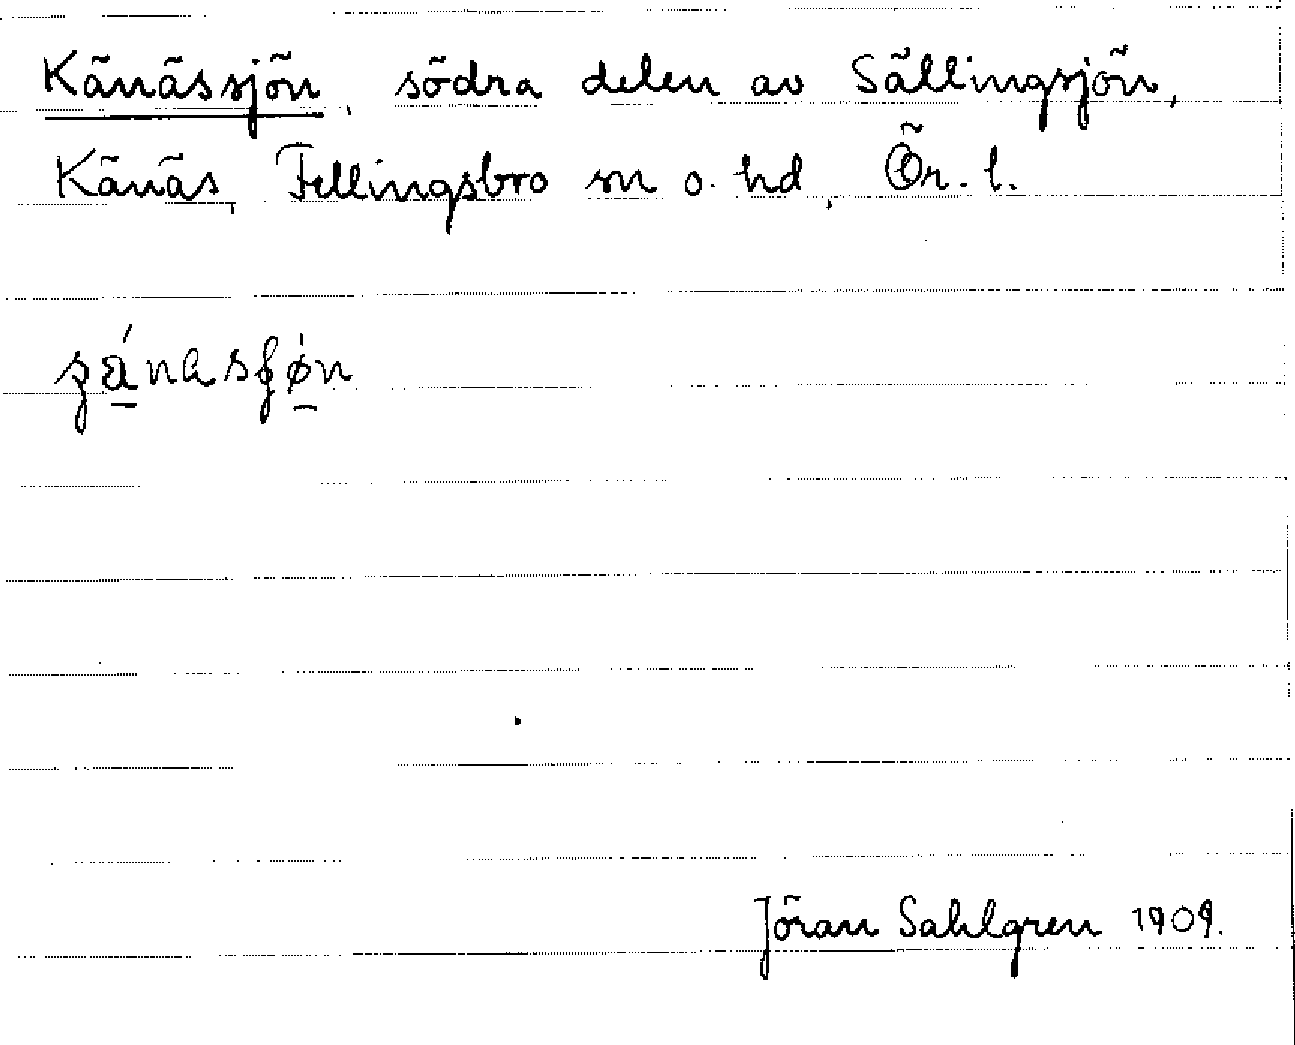 Känässjön, södra delen av Sällingsjön,
Känäs, Fellingsbro sn o. hd, Ör. l.
Jöran Sahlgren 1909.